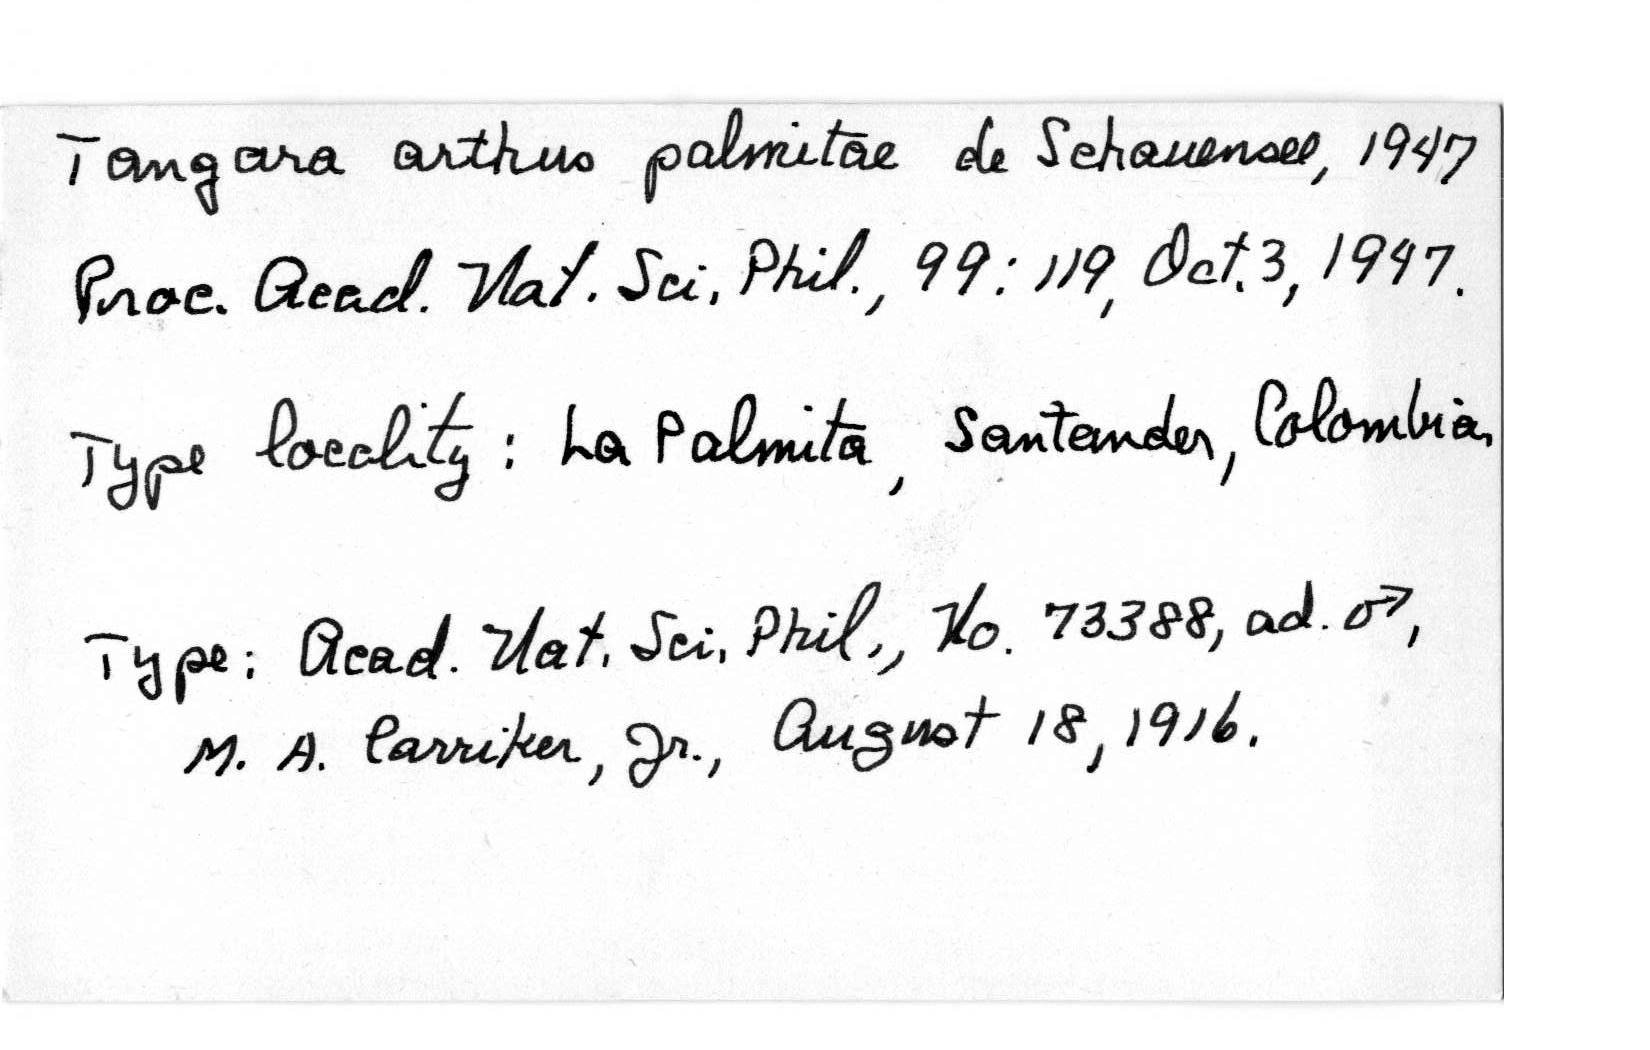 Tangara arthus palmitae de Schauensee, 1947
Proc. Acad. Nat. Sci. Phil., 99: 119, Oct. 3, 1947.
Type locality: La Palmita, Santander, Colombia.
Type: Acad. Nat. Sci. Phil., No. 73388, ad. ♂,
M. A. Carriker, Jr., August 18, 1916.